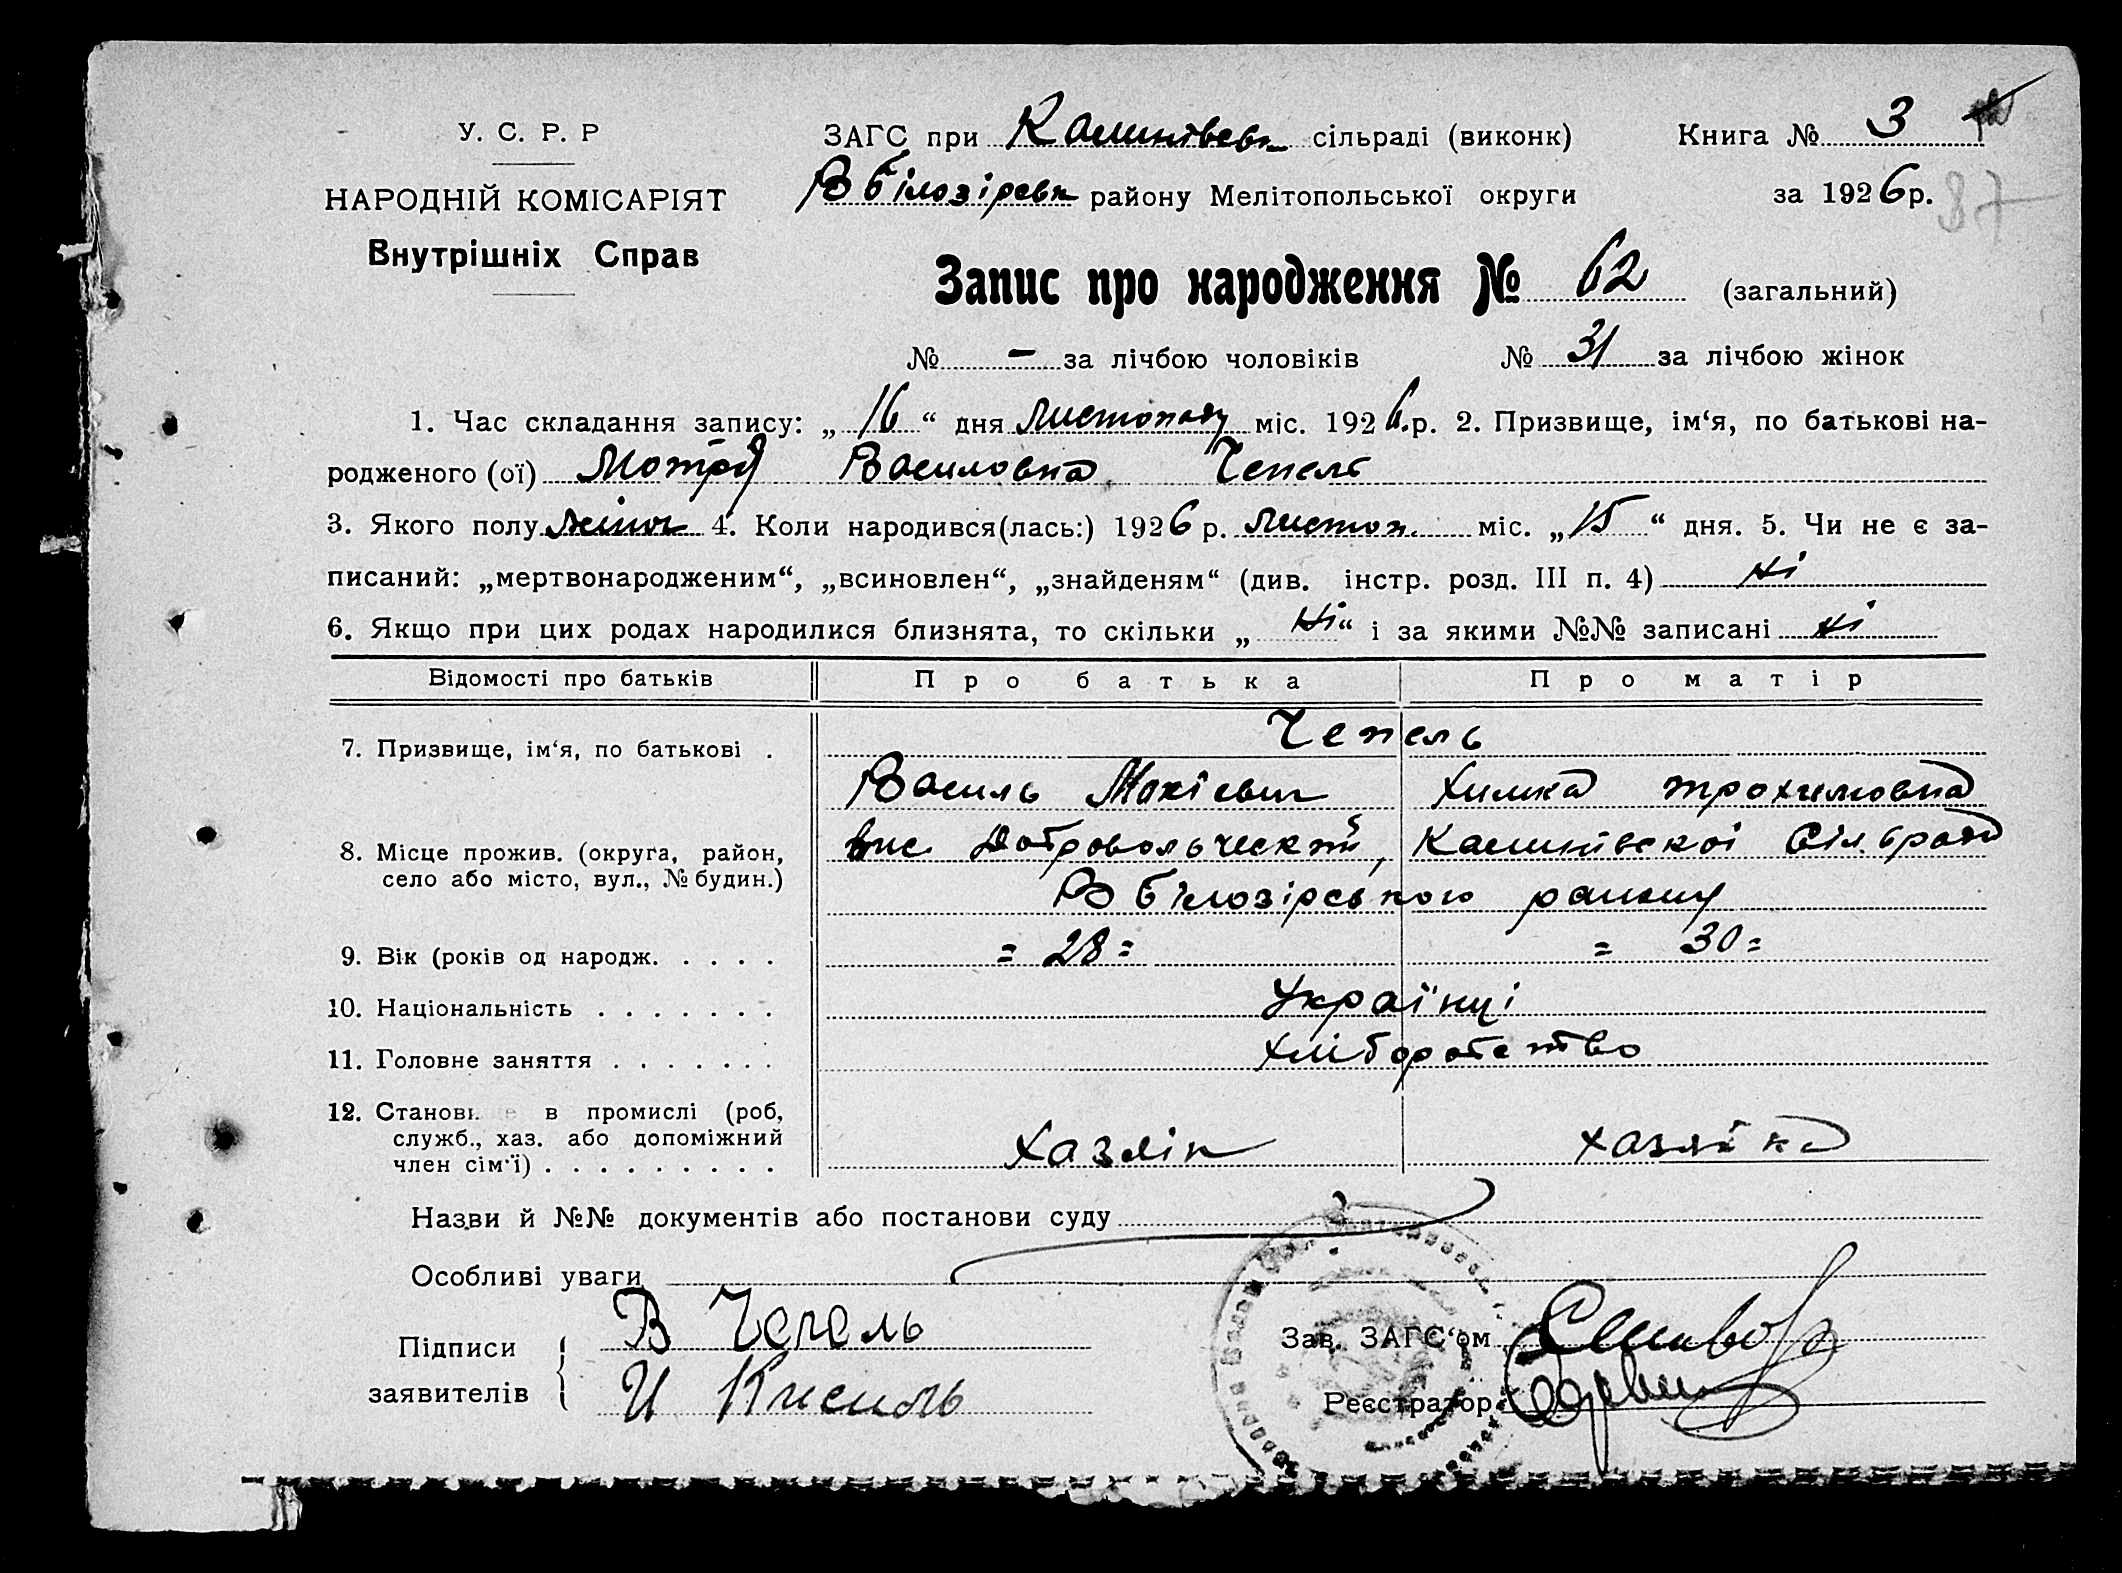 У. С. Р. Р
НАРОДНІЙ КОМІСАРІЯТ
Внутрішніх Справ
ЗАГС при Калинівськ сільраді (виконк) Книга № 3
В Білозірськ району Мелітопольської округи за 1926 р. 87
Запис про народження № 62 (загальний)
№ - за лічбою чоловіків № 31 за лічбою жінок
1. Час складання запису: „16“ дня Листопаду міс. 1926 р. 2. Призвище, ім‘я, по батькові на-
родженого (ої) Мотря Василовна Чепель
3. Якого полу жіноч 4. Коли народився(лась:) 1926 р. Листоп. міс. „15“ дня. 5. Чи не є за-
писаний: „мертвонародженим“, „всиновлен“, „знайденям“ (див. інстр. розд. III п. 4) ні
6. Якщо при цих родах народилися близнята, то скільки „ні“ і за якими №№ записані ні
Відомості про батьків Про батька Про матір
7. Призвище, ім‘я, по батькові . Чепель
Василь Мокієвич Химка Трохимовна
8. Місце прожив. (округа, район, село або місто, вул., № будин.) вис. Добровольческий, Калинівської Сільради
В Білозірського району
9. Вік (років од народж. . . . . = 28 = = 30 =
10. Національність . . . . . . . Українці
11. Головне заняття . . . . . . . Хліборобство
12. Становище в промислі (роб, служб., хаз. або допоміжний член сім‘ї) . . . . . . . . . Хазяїн хазяйка
Назви й №№ документів або постанови суду
Особливі уваги
Підписи заявителів В Чепель
И Кисиль
Зав. ЗАГС‘ом
Реєстратор